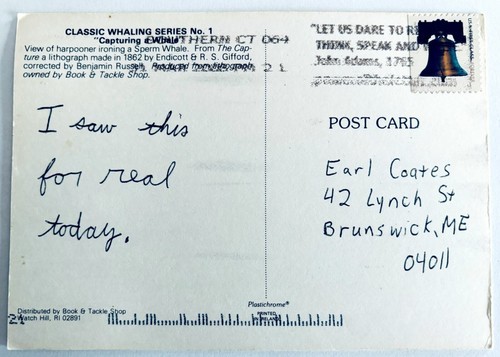 CLASSIC WHALING SERIES No. 1
"Capturing a Whale"
SOUTHERN CT 064
View of harpooner ironing a Sperm Whale. From The Cap-
ture a lithograph made in 1862 by Endicott & R. S. Gifford,
corrected by Benjamin Russell. Reproduced from lithograph
owned by Book & Tackle Shop.
"LET US DARE TO
THINK, SPEAK AND
John Adams, 1765
USA FIRST-CLASS
I saw this
for real
today.
POST CARD
Earl Coates
42 Lynch St
Brunswick, ME
04011
Plastichrome®
Distributed by Book & Tackle Shop
Watch Hill, RI 02891
PRINTED
IN IRELAND
21